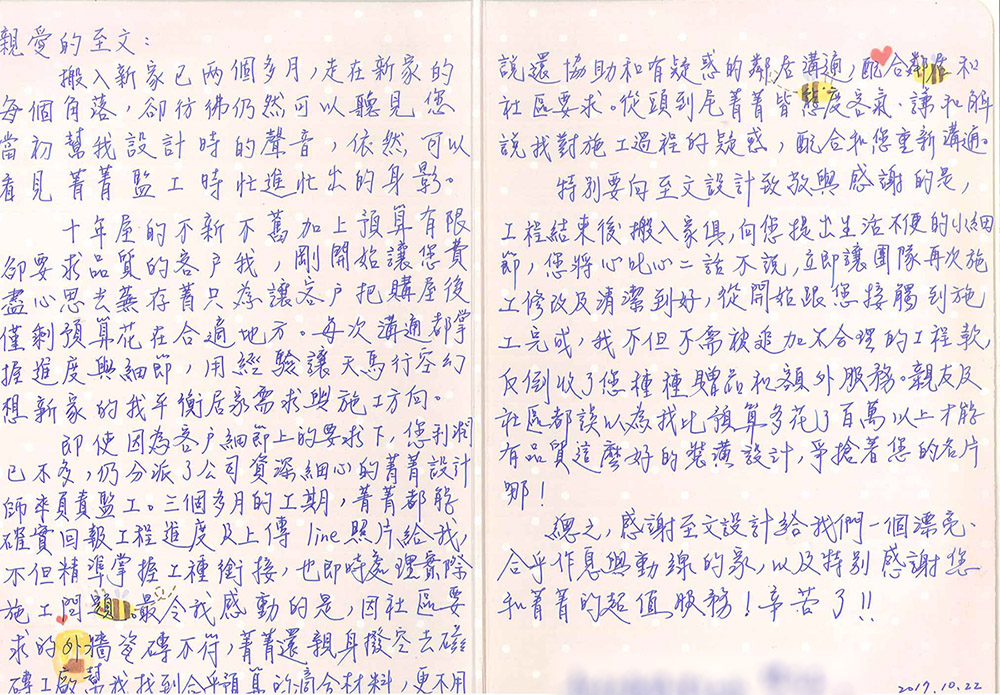 親愛的至文：
搬入新家已兩個多月，走在新家的
每個角落，卻彷彿仍然可以聽見您
當初幫我設計時的聲音，依然可以
看見菁菁監工時忙進忙出的身影。
十年屋的不新不舊加上預算有限
卻要求品質的客戶我，剛開始讓您費
盡心思去蕪存菁只為讓客戶把購屋後
僅剩預算花在合適地方。每次溝通都掌
握進度與細節，用經驗讓天馬行空幻
想新家的我平衡居家需求與施工方向。
即使因為客戶細節上的要求下，您利潤
已不多，仍分派了公司資深細心的菁菁設計
師來負責監工。三個多月的工期，菁菁都能
確實回報工程進度及上傳line照片給我，
不但精準掌握工種銜接，也即時處理實際
施工問題。最令我感動的是，因社區要
求的外牆瓷磚不符，菁菁還親身撥空去磁
磚工廠幫我找到合乎預算的適合材料，更不用
說還協助和有疑惑的鄰居溝通，配合鄰居和
社區要求。從頭到尾菁菁皆態度客氣、謙和解
說我對施工過程的疑惑，配合和您重新溝通。
特別要向至文設計致敬與感謝的是，
工程結束後搬入家俱，向您提出生活不便的小細
節，您將心比心二話不說，立即讓團隊再次施
工修改及清潔到好，從開始跟您接觸到施
工完成，我不但不需被追加不合理的工程款，
反倒收了您種種贈品和額外服務。親友及
社區都誤以為我比預算多花了百萬以上才能
有品質這麼好的裝潢設計，爭搶著您的名片
耶！
總之，感謝至文設計給我們一個漂亮、
合乎作息與動線的家，以及特別感謝您
和菁菁的超值服務！辛苦了!!
2017.10.22